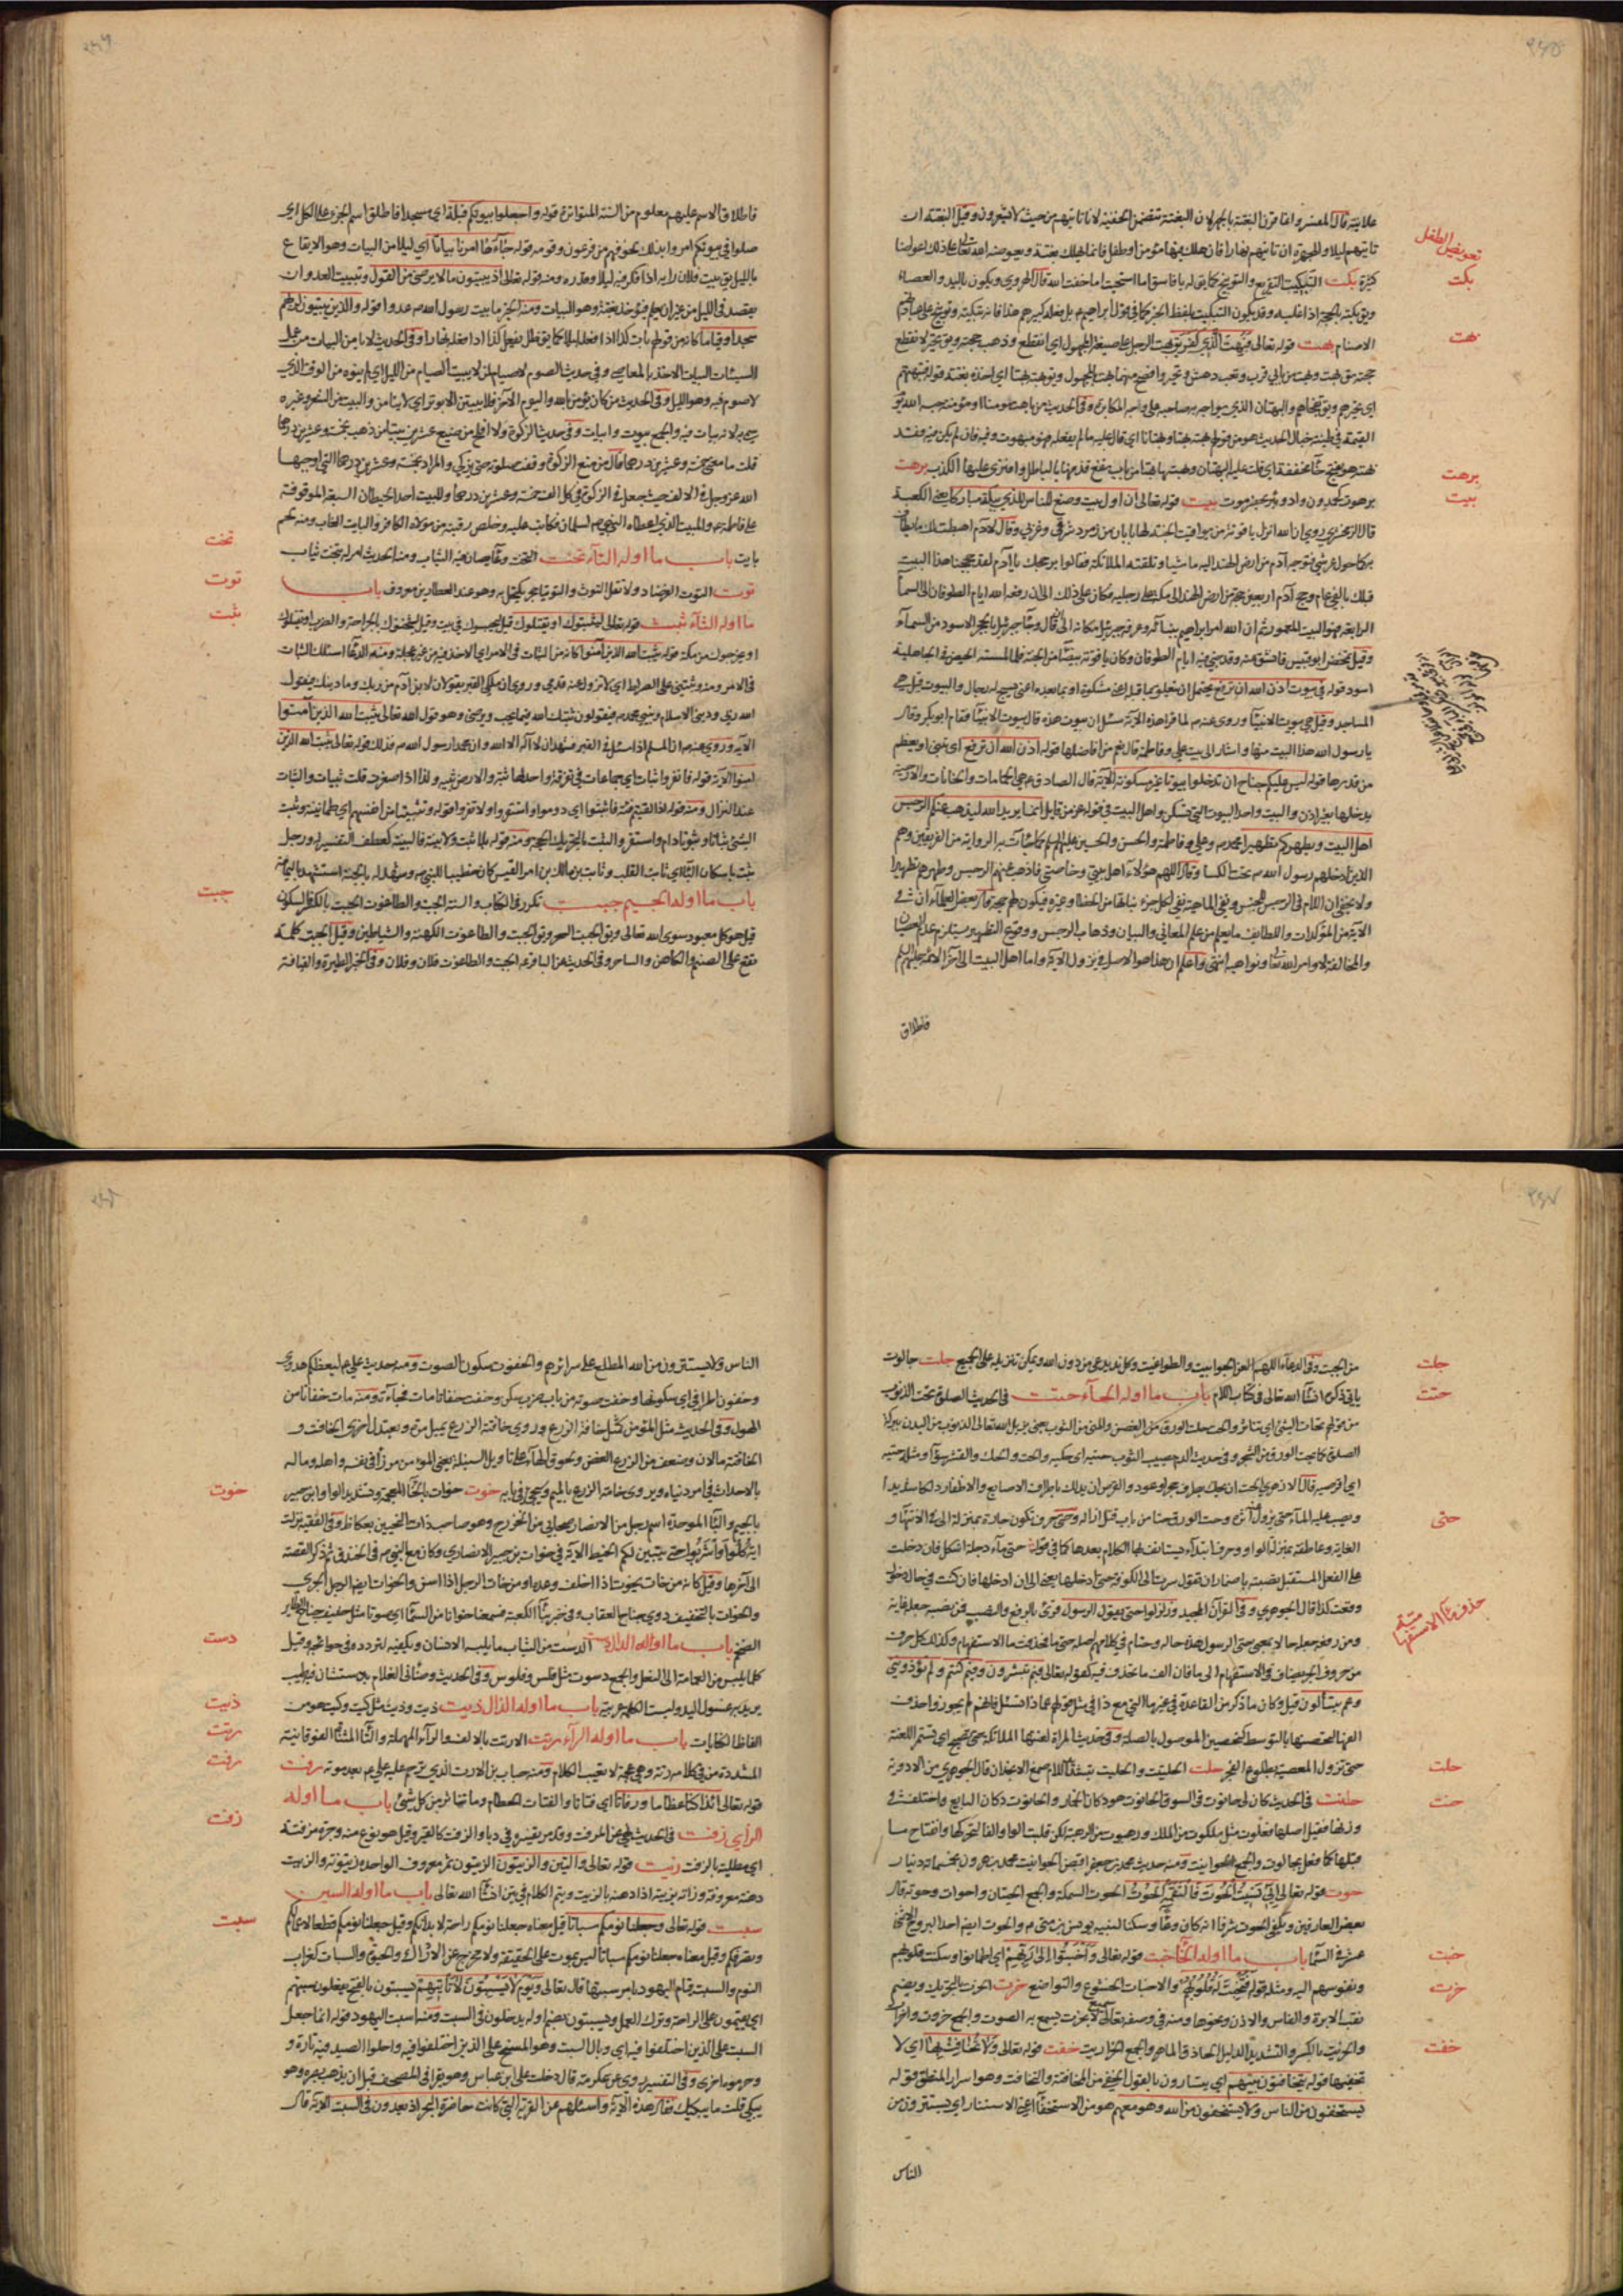 علانية قال المفسر وانما قرن البغتة بالجهر لان البغتة تتضمن الخفية لانه تاتيهم من حيث لا يشعرون وقيل البغتة ان
تعويض الطفل
تاتيهم ليلا والجهرة ان تاتيهم نهارا فان هلك فيها مؤمن او طفل فانما يهلك بغتة ويعوضه الله تعالى على ذلك اعواضا
بكت
كثيرة بكت التبكيت التقريع والتوبيخ كما يق له يا فاسق اما استحييت اما خفت الله قال الهروي ويكون باليد والعصا
ويق بكته بالحجة اذا غلبه وقد يكون التبكيت بلفظ الخبر كما في قول ابراهيم بل فعله كبيرهم هذا فانه تبكيت وتوبيخ على عبادتهم
بهت
الاصنام بهت قوله تعالى فبهت الذي كفر يق بهت الرجل على صيغة المجهول اي انقطع وذهب حجته ويق تحير لانقطاع
حجته يق بهت وبهت من بابي قرب وتعب دهش وتحير وافصح منهما بهت المجهول ويق بهته بهتا اي اخذه بغتة قوله فتبهتهم
اي تحيرهم ويق تفجاهم والبهتان الذي يواجه به صاحبه على وجه المكابرة وفي الحديث من باهت مومنا او مؤمنة حبسه الله يوم
القيمة في طينة خبال الحديث هو من قولهم بهته بهتا وبهتانا اي قال عليه ما لم يفعله وهو مبهوت وفيه فان لم يكن فيه فقد
برهت
بهته هو بفتح هاء مخففة اي قلت عليه البهتان وبهتها بهتا من باب نفع قذفها بالباطل وافترى عليها الكذب برهت
بيت
برهوت كحمدون واد وبئر بحضرموت بيت قوله تعالى ان اول بيت وضع للناس للذي ببكة مباركا يعني الكعبة
قال الزمخشري روي ان الله انزل ياقوتة من يواقيت الجنة لها بابان من زمرد شرقي وغربي وقال لادم اهبطت لك ما يطاف
به كما حول عرشي فتوجه آدم من ارض الهند اليه ماشيا وتلقته الملائكة فقالوا بر حجك يا آدم لقد حججنا هذا البيت
قبلك بالفي عام وحج آدم اربعين حجة من ارض الهند الى مكة على رجليه فكان على ذلك الى ان رفعه الله ايام الطوفان الى السماء
الرابعة فهو البيت المعمور ثم ان الله امر ابراهيم ببنائه وعرفه جبرئيل مكانه الى ان قال وجاء جبرئيل بالحجر الاسود من السماء
وقيل تمخض ابو قبيس فانشق عنه وقد خبئ فيه ايام الطوفان وكان ياقوتة بيضاء من الجنة فلما لمسته الحيض في الجاهلية
اسود قوله في بيوت اذن الله ان ترفع يحتمل ان يتعلق بما قبله اعني مشكوة او بما بعده اعني يسبح له رجال والبيوت قيل هي
المساجد وقيل هي بيوت الانبياء وروي عنه م لما قرا هذه الآية سئل اي بيوت هذه قال بيوت الانبياء فقام ابوبكر وقال
يا رسول الله هذا البيت منها واشار الى بيت علي وفاطمة قال نعم من افاضلها قوله اذن الله ان ترفع اي تبنى او يعظم
من قدرها قوله ليس عليكم جناح ان تدخلوا بيوتا غير مسكونة الآية قال الصادق ع هي الحمامات والخانات والارحية
يدخلها بغير اذن والبيت واحد البيوت التي تسكن واهل البيت في قوله عز من قايل انما يريد الله ليذهب عنكم الرجس
اهل البيت ويطهركم تطهيرا محمد م وعلي وفاطمة والحسن والحسين عليهم السلم كما جاءت به الرواية من الفريقين وهم
الذين ادخلهم رسول الله م تحت الكسا وقال اللهم هؤلاء اهل بيتي وخاصتي فاذهب عنهم الرجس وطهرهم تطهيرا
ولا يخفى ان اللام في الرجس للجنس ونفي الماهية نفي لكل جزء
والمخالفة لاوامر الله تعالى ونواهيه انتهى واعلم ان هذا هو الاصل في نزول الآية واما اهل البيت الى آخر الائمة عليهم السلم
فاطلاق
فاطلاق الاسم عليهم معلوم من السنة المتواترة قوله واجعلوا بيوتكم قبلة اي مسجدا فاطلق اسم الجزء على الكل اي
صلوا في بيوتكم امروا بذلك لخوفهم من فرعون وقومه قوله جاءها امرنا بياتا اي ليلا من البيات وهو الايقاع
بالليل يق بيت فلان رايه اذا فكر فيه ليلا وقدره ومنه قوله تعالى اذ يبيتون ما لا يرضى من القول وتبييت العدو ان
يقصد في الليل من غير ان يعلم فيؤخذ بغتة وهو البيات ومنه الخبر ما بيت رسول الله م عدوا قوله والذين يبيتون لربهم
سجدا وقياما كانه من قولهم بات كذا اذا فعله ليلا كما يق ظل يفعل كذا اذا فعله نهارا وفي الحديث لا نامن البيات من عمل
السيئات البيات الاخذ بالمعاصي وفي حديث الصوم لا صيام لمن لا يبيت الصيام من الليل اي لم ينوه من الوقت الذي
لا صوم فيه وهو الليل وفي الحديث من كان يؤمن بالله واليوم الآخر فلا يبيتن الا بوتر اي لا ينامن والبيت من الشعر وغيره
سمي به لانه يبات فيه والجمع بيوت وابيات وفي حديث الزكوة
قلت ما معنى خمسة وعشرين درهما قال من منع الزكوة وقفت صلوته حتى يزكي والمراد بخمسة وعشرين درهما التي اوجبها
الله عز وجل في الالف حيث جعل في الزكوة في كل الف خمسة وعشرين درهما وللبيت احد الحيطان السبعة الموقوفة
على فاطمة ع والمبيت الذي اعطاه النبي م لسلمان فكاتب عليه وخلص رقبته من مولاه الكافر والبايت الغاب ومنه لحم
تخت
بايت باب ما اوله التاء تخت التخت وعاء يصان فيه الثياب ومنه الحديث امر له بتخت ثياب
توت
توت التوت الفرصاد ولا تقل التوث والتوتيا حجر يكتحل به وهو عند العطارين معروف باب
ثبت
ما اوله الثاء ثبت قوله تعالى ليثبتوك او يقتلوك قيل ليحبسوك في بيت وقيل ليثخنوك بالجراحة والضرب او يقتلوك
او يخرجوك من مكة قوله يثبت الله الذين آمنوا كانه من الثبات في الامر اي الاخذ فيه من غير عجلة ومنه الدعاء اسئلك الثبات
في الامر ومنه وثبتني على الصراط اي لا تزول عنه قدمي وروي ان ملكي القبر يقولان لابن آدم من ربك وما دينك فيقول
الله ربي وديني الاسلام ونبيي محمد م فيقولون ثبتك الله فيما يحب ويرضى وهو قول الله تعالى يثبت الله الذين آمنوا
الآية وروي عنه م ان المسلم اذا سئل في القبر فشهد ان لا اله الا الله وان محمدا رسول الله م فذلك قوله تعالى يثبت الله الذين
امنوا الآية قوله فانفروا ثبات اي جماعات في تفرقة واحدتها ثبة ولذا اذا صغرت قلت ثبيات والثبات
عند النزال ومنه قوله اذا لقيتم فئة فاثبتوا اي دوموا واستقروا ولا تفروا قوله وتثبيتا من انفسهم اي طمانينة وثبت
الشئ ثباتا وثبوتا دام واستقر والثبت بالتحريك الحجة ومنه قوله بلا ثبت ولا بينة فالبينة كعطف التفسير له ورجل
ثبت باسكان الباء اي ثابت القلب وثابت بن مالك بن امرء القيس كان خطيبا للنبي م وشهد له بالجنة استشهد باليمامة
جبت
باب ما اوله الجيم جبت تكرر في الكتاب والسنة الجبت والطاغوت الجبت بالكسر فالسكون
قيل هو كل معبود سوى الله تعالى ويق الجبت السحر ويق الجبت والطاغوت الكهنة والشياطين وقيل الجبت كلمة
تقع على الصنم والكاهن والساحر وفي الحديث عن الباقر ع الجبت والطاغوت فلان وفلان وفي الخبر الطيرة والعيافة
جلت
من الجبت وفي الدعاء اللهم العن الجوابيت والطواغيت وكل ند يدعى من دون الله ويمكن تنزيله على الجميع جلت جالوت
حتت
ياتي ذكره انشاء الله تعالى في كتاب اللام باب ما اوله الحاء حتت في الحديث الصلوة تحت الذنوب
من قولهم تحات الشئ اي تناثر والحت حك الورق من الغصن والمني من الثوب يعني يزيل الله تعالى الذنوب من البدن ببركة
الصلوة كما يحت الورق من الشجر وفي حديث الدم يصيب الثوب حتيه اي حكيه والحت والحك والقشر سواء ومثله حتيه
اي اقرصيه قال الازهري الحت ان يحك بطرف حجر او عود والقرص ان يدلك باطراف الاصابع والاظفار دلكا شديدا
حتى
ويصب عليه الماء حتى يزول اثره وحت الورق حتا من باب قتل ازاله وحتى حرف تكون جارة بمنزلة الى في الانتهاء و
الغاية وعاطفة بمنزلة الواو وحرف ابتداء يستانف بها الكلام بعدها كما في قوله حتى ماء دجلة اشكل فان دخلت
على الفعل المستقبل نصبته باضمار ان تقول سرت الى الكوفة حتى ادخلها بمعنى الى ان ادخلها فان كنت في حال دخول
حذف ما الاستفهامية
رفعت كذا قال الجوهري وفي القرآن المجيد وزلزلوا حتى يقول الرسول قرئ بالرفع والنصب فمن نصب جعله غاية
ومن رفع جعله حالا بمعنى حتى الرسول هذه حاله وحتام في كلامهم اصله حتى ما فحذفت ما الاستفهام وكذلك كل حرف
من حروف الجر يضاف في الاستفهام الى ما فان الف ما تحذف فيه كقوله تعالى فبم تبشرون وفيم كنتم ولم تؤذونني
وعم يتسائلون
حلت
حتى تزول المعصية بطلوع الفجر حلت الحلتيت والحليت بتشديد اللام صمغ الانجذان قال الجوهري من الادوية
حنت
حانت في الحديث كان لي حانوت في السوق الحانوت هو دكان الخمار والحانوت دكان البايع واختلف في
وزنها فقيل اصلها فعلوت مثل ملكوت من الملك ورهبوت من الرهبة لكن قلبت الواو الفا لتحركها وانفتاح ما
قبلها كما فعل بجالوت والجمع الحوانيت ومنه حديث محمد بن جعفر اقبض الحوانيت من محمد بن هرون بخمسمائة دينار
حوت قوله تعالى اني نسيت الحوت فالتقمه الحوت الحوت السمكة والجمع الحيتان واحوات وحوتة قال
بعض العارفين ويكفي الحوت شرفا انه كان وعاء وسكنا لنبيه يونس بن متى م والحوت ايضا احد البروج الاثنى
خبت
عشر في السماء باب ما اوله الخاء خبت قوله تعالى واخبتوا الى ربهم اي اطمانوا وسكنت قلوبهم
خرت
ونفوسهم اليه ومثله قوله فتخبت له قلوبهم والاخبات الخشوع والتواضع خرت الخرت بالتحريك ويضم
ثقب الابرة والفاس والاذن ونحوها ومنه في وصفه تعالى سميع لا بخرت يسمع به الصوت والجمع خروت واخرات
خفت
والخريت بالكسر والتشديد الدليل الحاذق الماهر والجمع الخراريت خفت قوله تعالى ولا تخافت بها اي لا
تخفيها قوله يتخافتون بينهم اي يتسارون بالقول الخفي من المخافتة والتخافت وهو اسرار المنطق قوله
يستخفون من الناس ولا يستخفون من الله وهو معهم هو من الاستخفاء اعني الاستتار اي يستترون من
الناس
الناس ولا يستترون من الله المطلع على سرائرهم والخفوت سكون الصوت ومنه حديث علي ع ليعظكم هدوي
وخفوت اطرافي اي سكونها وخفت صوته من باب ضرب سكن وخفت خفاتا مات فجاءة ومنه مات خفاتا من
الهول وفي الحديث مثل المؤمن كمثل خافتة الزرع وروي خافتة الزرع يميل مرة ويعتدل اخرى الخافت و
الخافتة ما لان وضعف من الزرع الغض ولحوق الهاء على تاويل السنبلة يعني المؤمن مرزأ في نفسه واهله وماله
خوت
بالاحداث في امر دنياه ويروى خامة الزرع بالميم ويجئ في بابه خوت خوات بالخاء المعجمة وتشديد الواو ابن جبير
بالجيم والباء الموحدة اسم رجل من الانصار صحابي من الخزرج وهو صاحب ذات النحيين بعكاظ وفي الفقيه نزلت
اية كلوا واشربوا حتى يتبين لكم الخيط الاية في خوات بن جبير الانصاري وكان مع النبي م في الخندق ثم ذكر القصة
الى آخرها وقيل كانه من خات يخوت اذا اخلف وعده او من خات الرجل اذا اسن والخوات ايضا الرجل الجري
والخوات بالتخفيف دوي جناح العقاب وفي خبر بناء الكعبة فسمعنا خواتا من السماء اي صوتا مثل حفيف جناح الطاير
دست
الضخم باب ما اوله الدال دست الدست من الثياب ما يلبسه الانسان ويكفيه لتردده في حوائجه وقيل
كلما يلبس من العمامة الى النعل والجمع دسوت مثل فلس وفلوس وفي الحديث وضأني الغلام بدستشان
ذيت
يريد به غسول اليد وليست الكلمة عربية باب ما اوله الذال ذيت ذيت وذيت مثل كيت وكيت هو من
رتت
الفاظ الكنايات باب ما اوله الراء رتت الارتت بالالف والراء المهملة والتاء المثناة الفوقانية
رفت
المشددة من في كلامه رتة وهي عجمة لا تعيب الكلام ومنه خباب بن الارت الذي ترحم عليه علي ع بعد موته رفت
قوله تعالى ائذا كنا عظاما ورفاتا اي فتاتا والفتات الحطام وما تناثر من كل شئ باب ما اوله
زفت
الزاي زفت في الحديث نهي عن المزفت وقد مر تفسيره في دبا والزفت كالقير وقيل هو نوع منه وجرة مزفتة
اي مطلية بالزفت زيت قوله تعالى والتين والزيتون الزيتون ثمر معروف الواحدة زيتونة والزيت
دهنه معروف وزاته يزيته اذا دهنه بالزيت ويتم الكلام في تين انشاء الله تعالى باب ما اوله السين
سبت
سبت قوله تعالى وجعلنا نومكم سباتا قيل معناه جعلنا نومكم راحة لابدانكم وقيل جعلنا نومكم قطعا لاعمالكم
وتصرفكم وقيل معناه جعلنا نومكم سباتا ليس بموت على الحقيقة ولا مخرج عن الادراك والحيوة والسبات كغراب
النوم والسبت قيام اليهود بامر سبتها قال تعالى ويوم لا يسبتون لا تاتيهم يسبتون بالفتح يفعلون سبتهم
اي يقيمون على الراحة وترك العمل ويسبتون بضم اوله يدخلون في السبت ومنه اسبت اليهود قوله انما جعل
السبت على الذين اختلفوا فيه اي وبال السبت وهو المسخ على الذين اختلفوا فيه واحلوا الصيد فيه تارة و
وحرموه اخرى وفي التفسير روي عن عكرمة قال دخلت على ابن عباس وهو يقرا في المصحف قبل ان يذهب بصره وهو
يبكي قلت ما يبكيك فقال هذه الآية واسئلهم عن القرية التي كانت حاضرة البحر اذ يعدون في السبت الآية قال